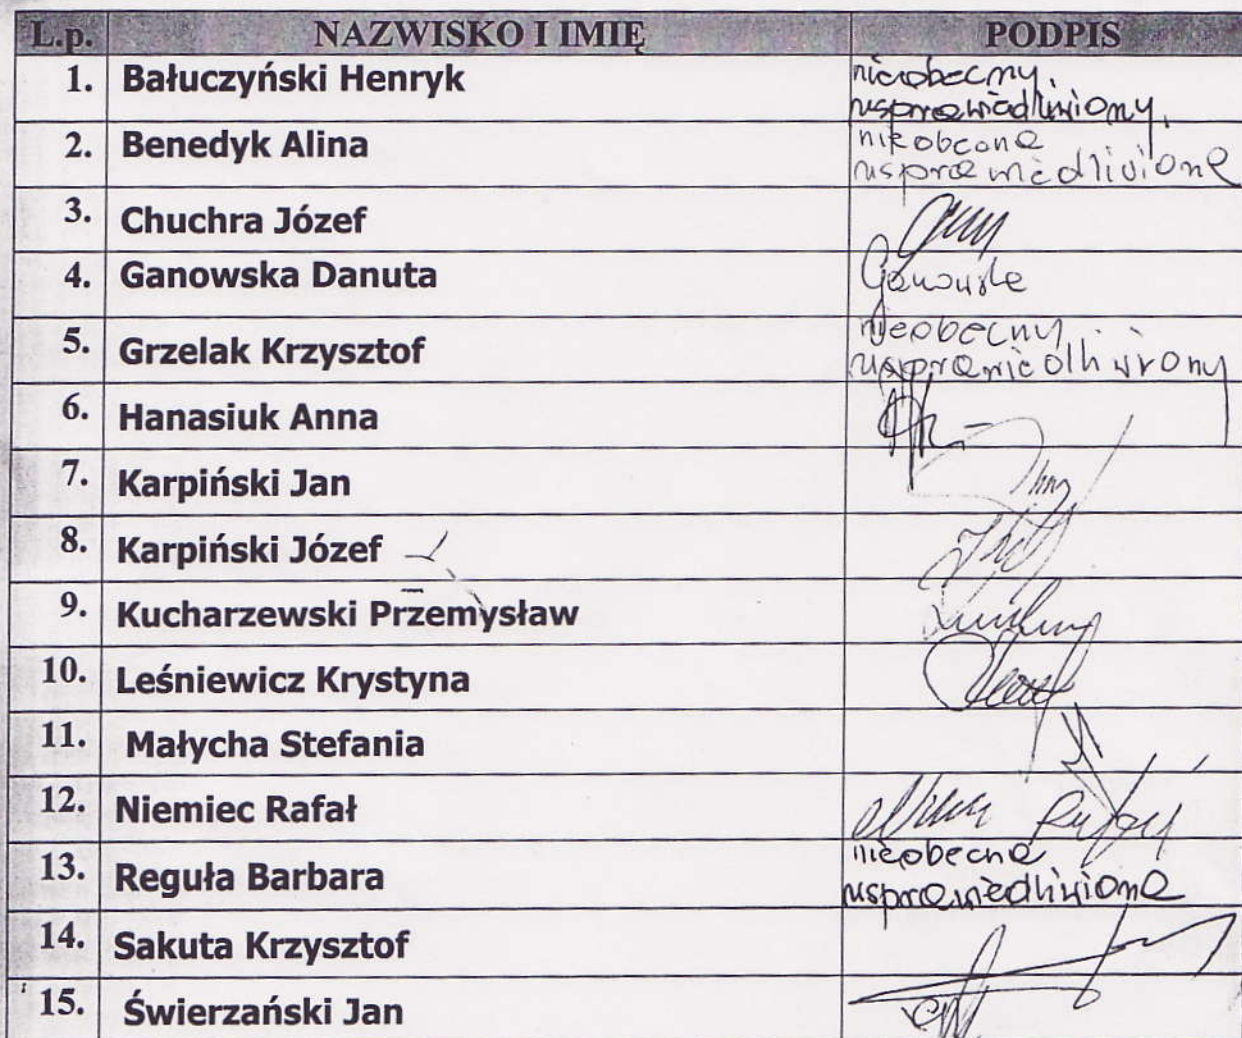 L.p. NAZWISKO I IMIĘ PODPIS
1. Bałuczyński Henryk nieobecny,
usprawiedliwiony,
2. Benedyk Alina nieobecna
usprawiedliwiona
3. Chuchra Józef
4. Ganowska Danuta Ganowska
5. Grzelak Krzysztof nieobecny,
usprawiedliwiony
6. Hanasiuk Anna
7. Karpiński Jan
8. Karpiński Józef
9. Kucharzewski Przemysław
10. Leśniewicz Krystyna
11. Małycha Stefania
12. Niemiec Rafał
13. Reguła Barbara nieobecna
usprawiedliwiona
14. Sakuta Krzysztof
15. Świerzański Jan